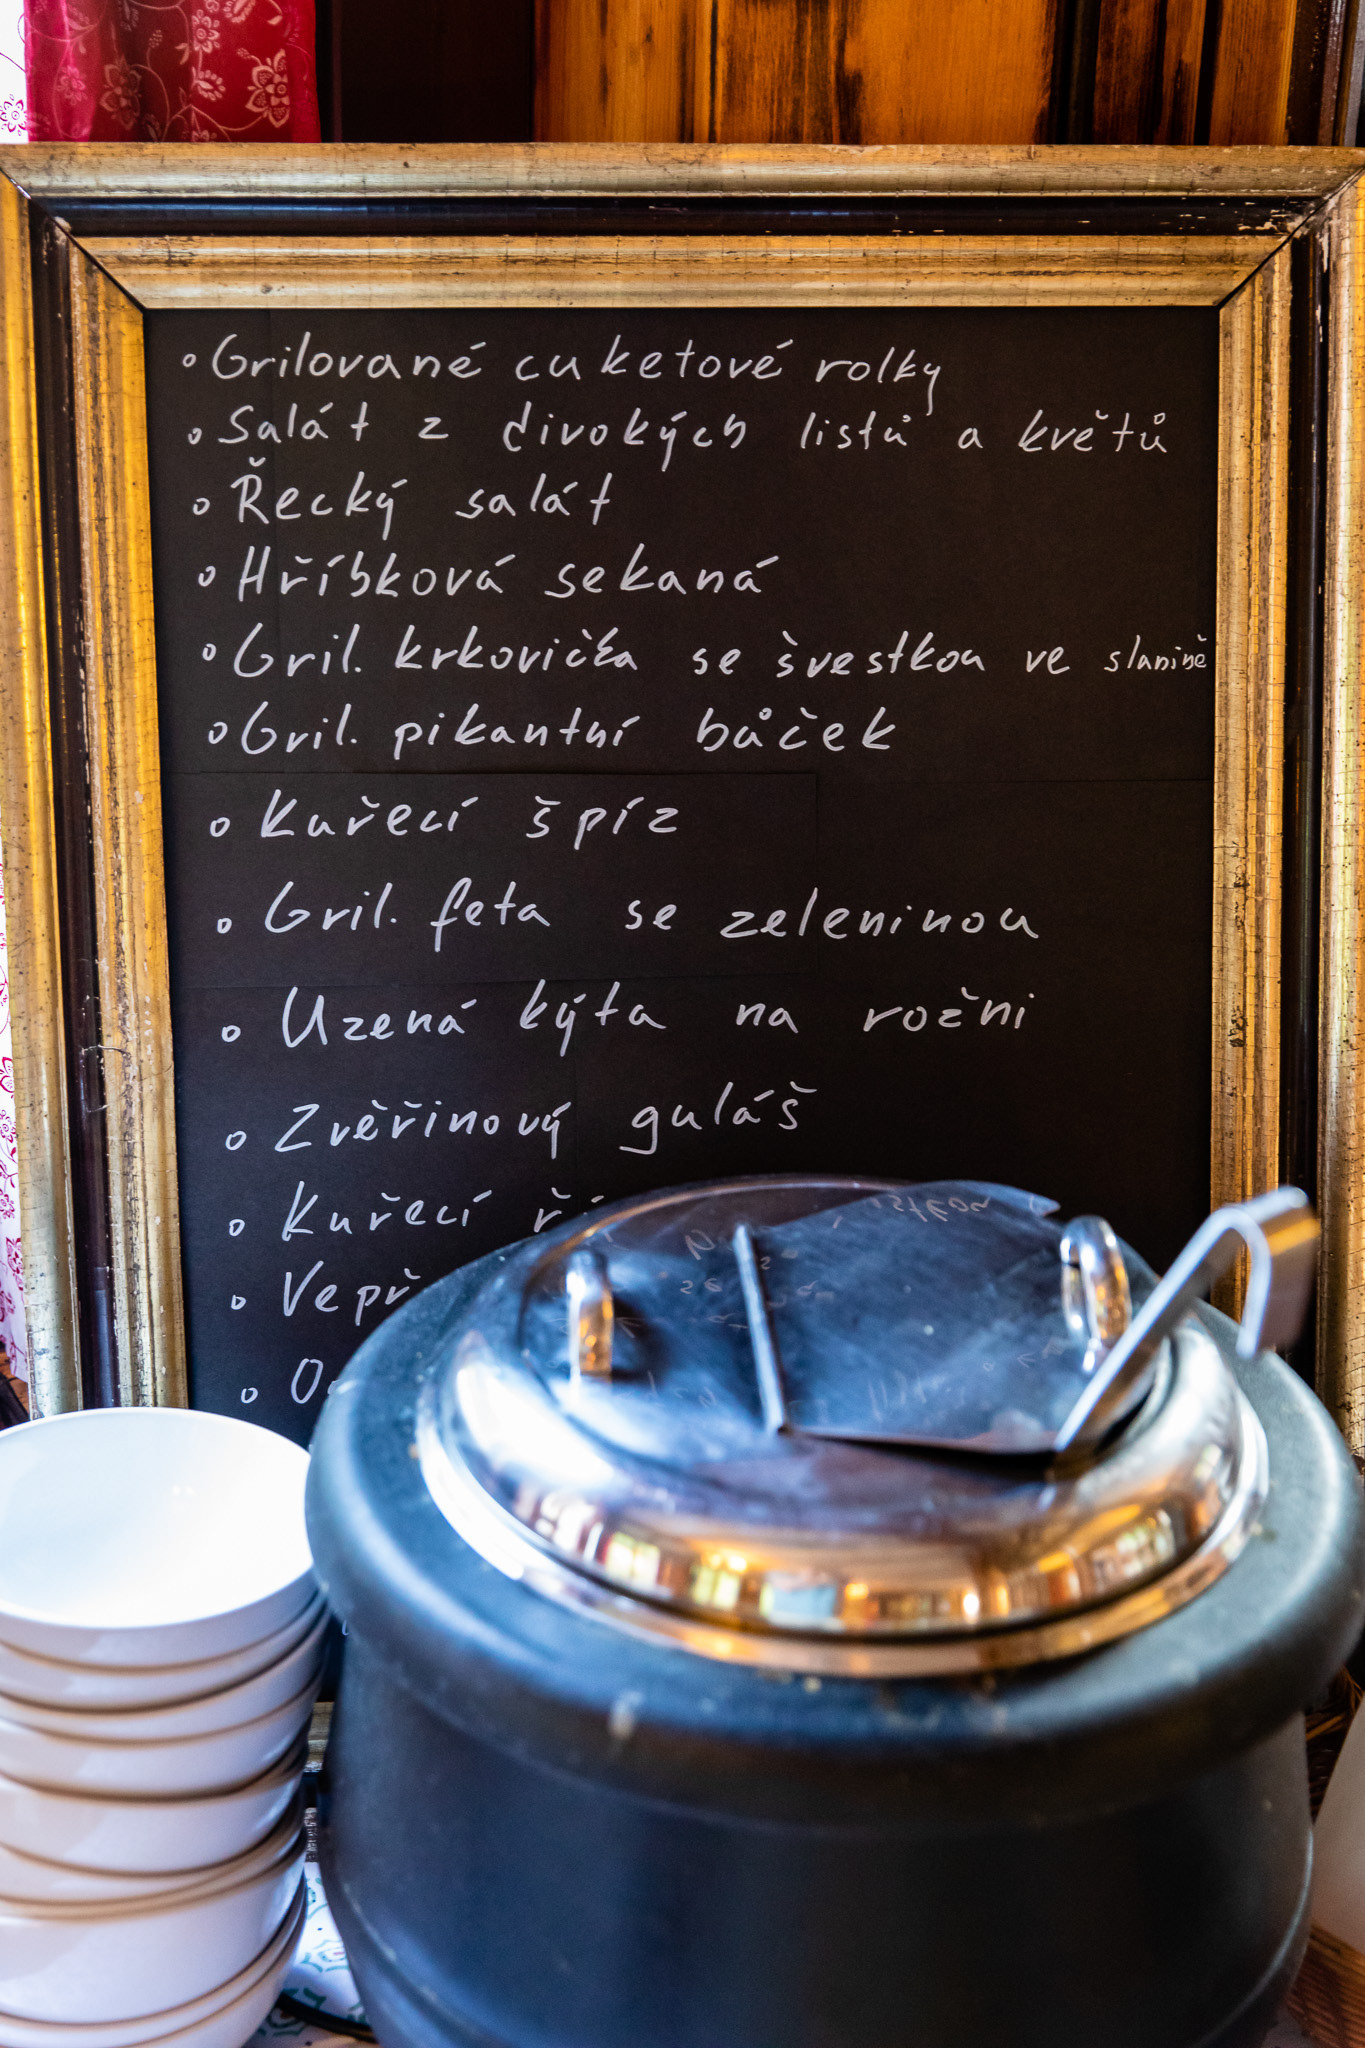 Grilované cuketové rolky
Salát z divokých listů a květů
Řecký salát
Hříbková sekaná
Gril. krkovička se švestkou ve slanině
Gril. pikantní bůček
Kuřecí špíz
Gril. feta se zeleninou
Uzená kýta na rožni
Zvěřinový guláš
Kuřecí